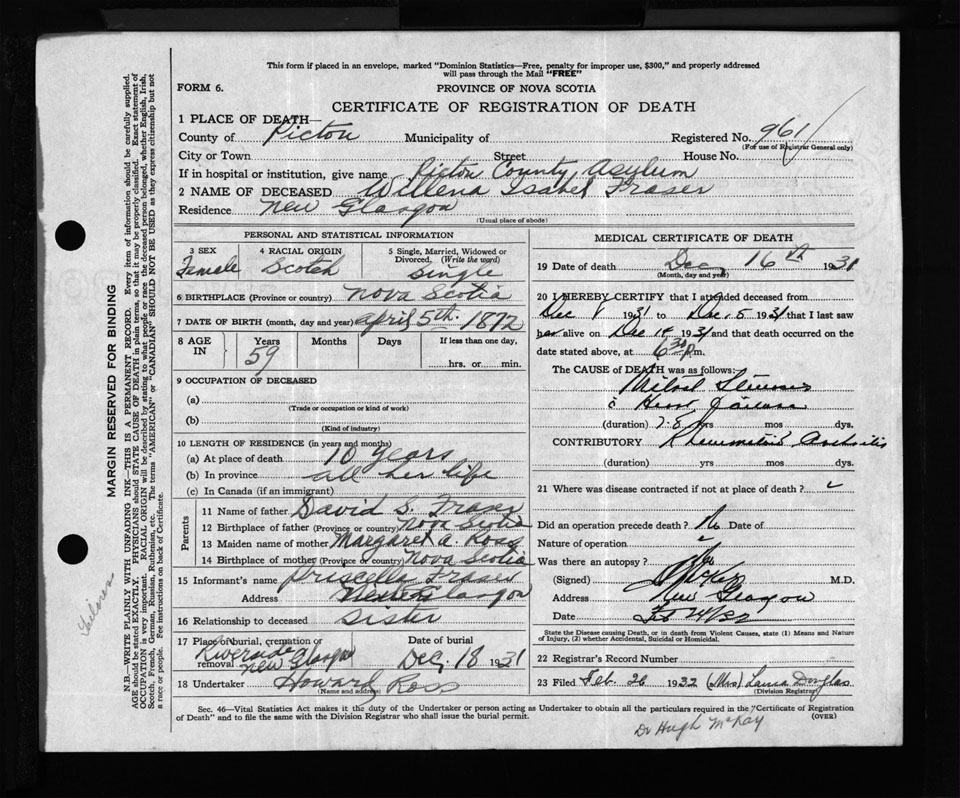 This form if placed in an envelope, marked "Dominion Statistics—Free, penalty for improper use, $300," and properly addressed
will pass through the Mail "FREE"
FORM 6.
PROVINCE OF NOVA SCOTIA
CERTIFICATE OF REGISTRATION OF DEATH
1 PLACE OF DEATH—
County of Pictou Municipality of Registered No. 961
(For use of Registrar General only)
City or Town Street House No.
If in hospital or institution, give name Pictou County Asylum
2 NAME OF DECEASED Willena Isabel Fraser
Residence New Glasgow
(Usual place of abode)
PERSONAL AND STATISTICAL INFORMATION
3 SEX 4 RACIAL ORIGIN 5 Single, Married, Widowed or
Divorced. (Write the word)
Female Scotch Single
6 BIRTHPLACE (Province or country) Nova Scotia
7 DATE OF BIRTH (month, day and year) April 5th. 1872
8 AGE IN Years Months Days If less than one day,
59 hrs. or min.
9 OCCUPATION OF DECEASED
(a)
(Trade or occupation or kind of work)
(b)
(Kind of industry)
10 LENGTH OF RESIDENCE (in years and months)
(a) At place of death 10 years
(b) In province all her life
(c) In Canada (if an immigrant)
Parents
11 Name of father David S. Fraser
12 Birthplace of father (Province or country) Nova Scotia
13 Maiden name of mother Margaret A. Ross
14 Birthplace of mother (Province or country) Nova Scotia
15 Informant's name Priscella Fraser
Address New Glasgow
16 Relationship to deceased Sister
17 Place of burial, cremation or removal Riverside New Glasgow
Date of burial Dec, 18 1931
18 Undertaker Howard Ross
(Name and address)
MEDICAL CERTIFICATE OF DEATH
19 Date of death Dec, 16th 1931
(Month, day and year)
20 I HEREBY CERTIFY that I attended deceased from
Dec 1931 to Dec. 15 1931 that I last saw
her alive on Dec 14 1931 and that death occurred on the
date stated above, at 6 30 Pm.
The CAUSE of DEATH was as follows:
Mitral Stenosis
c̄ Heart failure
(duration) 7-8 yrs mos dys.
CONTRIBUTORY Rheumatoid Arthritis
(duration) yrs mos dys.
21 Where was disease contracted if not at place of death?
Did an operation precede death? No Date of
Nature of operation
Was there an autopsy? No
(Signed) M.D.
Address New Glasgow
Date
State the Disease causing Death, or in death from Violent Causes, state (1) Means and Nature
of Injury, (2) whether Accidental, Suicidal or Homicidal.
22 Registrar's Record Number
23 Filed Feb. 26 1932 (Mrs) Laura Douglas
(Division Registrar)
Sec. 46—Vital Statistics Act makes it the duty of the Undertaker or person acting as Undertaker to obtain all the particulars required in the "Certificate of Registration
of Death" and to file the same with the Division Registrar who shall issue the burial permit.
(OVER)
Dr Hugh McKay
MARGIN RESERVED FOR BINDING
N.B.—WRITE PLAINLY WITH UNFADING INK—THIS IS A PERMANENT RECORD. Every item of information should be carefully supplied.
AGE should be stated EXACTLY. PHYSICIANS should STATE CAUSE OF DEATH in plain terms, so that it may be properly classified. Exact statement of
OCCUPATION is very important. RACIAL ORIGIN will be described by stating to what people or race the deceased person belonged, whether English, Irish,
Scotch, French, German, Russian, Ruthenian, etc. The terms "AMERICAN" or "CANADIAN" SHOULD NOT BE USED as they express citizenship but not
a race or people. Fee instructions on back of Certificate.